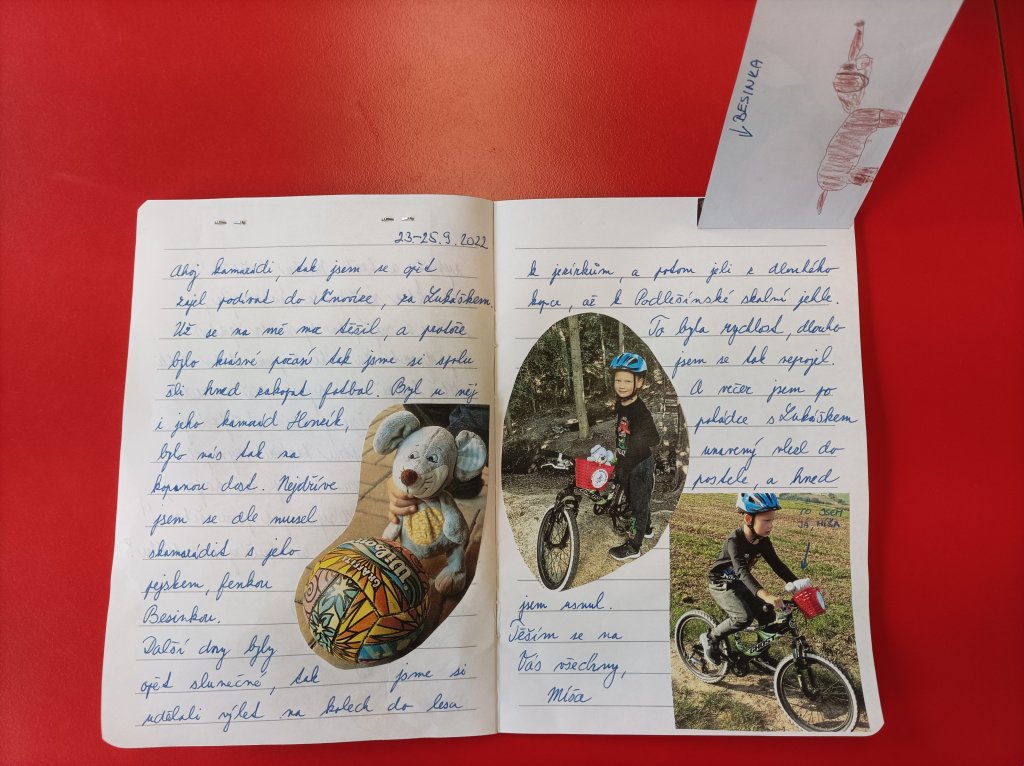 23-25.9.2022
Ahoj kamarádi, tak jsem se opět
zajel podívat do Vinoděze, za Lukáškem.
Už se na mě moc těšil, a protože
bylo krásné počasí tak jsme si spolu
šli hned zakopat fotbal. Byl u něj
i jeho kamarád Honzík,
bylo nás tak na
kopanou dost. Nejdříve
jsem se ale musel
skamarádit s jeho
pejskem, fenkou
Besinkou.
Další dny byly
opět slunečné, tak jsme si
udělali výlet na kolech do lesa
k jezírkům, a potom jeli z dlouhého
kopce, až k Podlešínské skalní jehle.
To byla rychlost, dlouho
jsem se tak neprojel.
A večer jsem po
pohádce s Lukáškem
unavený vlezl do
postele, a hned
jsem usnul.
Těším se na
Vás všechny,
Míša
↓ BESINKA
TO JSEM
JÁ MÍŠA